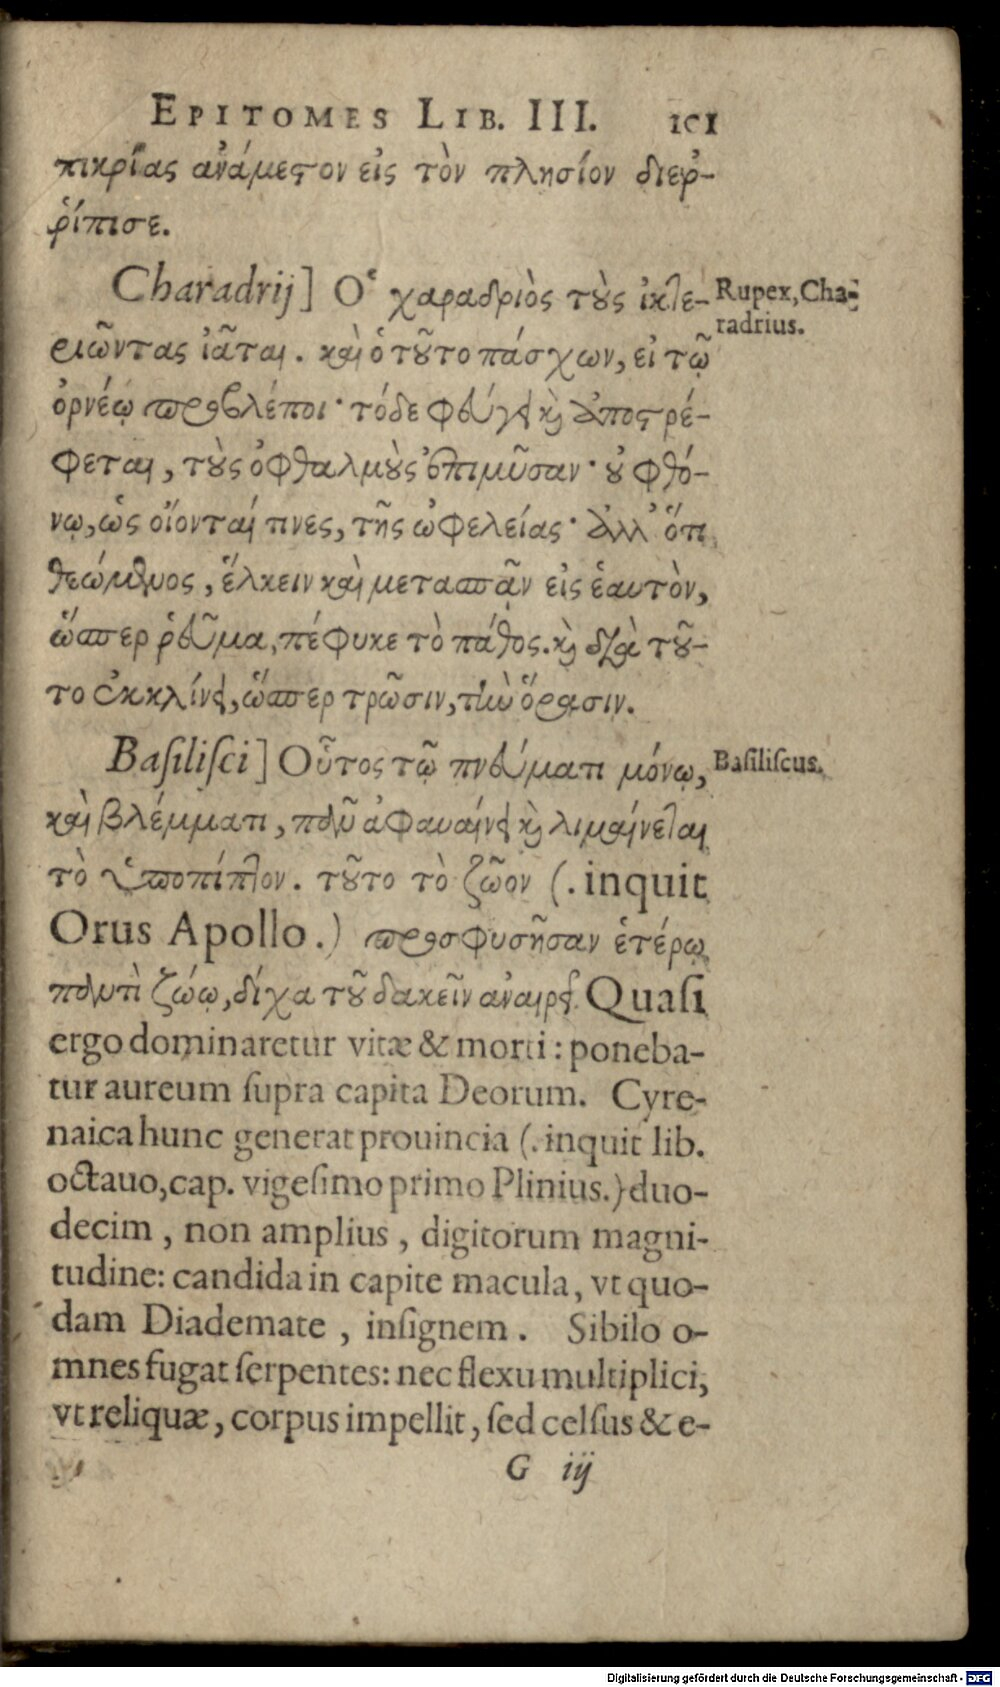 EPITOMES LIB. III. 101
πικρίας ἀνάμεστον εἰς τὸν πλησίον διεῤ-
ῥίπισε.
Charadrij] Ὁ χαραδριὸς τοὺς ἰκτε-
Rupex, Cha-
radrius.
ριῶντας ἰᾶται. καὶ ὁ τοῦτο πάσχων, εἰ τῷ
ὀρνέῳ προσβλέποι· τόδε φεύγει καὶ ἀποστρέ-
φεται, τοὺς ὀφθαλμοὺς ἐπιμῦσαν· οὐ φθό-
νῳ, ὡς οἴονταί τινες, τῆς ὠφελείας· ἀλλ' ὅτι
θεώμενος, ἕλκειν καὶ μετασπᾷν εἰς ἑαυτὸν,
ὥσπερ ῥεῦμα, πέφυκε τὸ πάθος. καὶ διὰ τοῦ-
το ἐκκλίνει, ὥσπερ τρῶσιν, τὴν ὅρασιν.
Basiliſci] Οὗτος τῷ πνεύματι μόνῳ,
Basiliſcus.
καὶ βλέμματι, πᾶν ἀφαυαίνει καὶ λιμαίνεται
τὸ ὑποπίπτον. τοῦτο τὸ ζῶον (. inquit
Orus Apollo.) προσφυσῆσαν ἑτέρῳ
παντὶ ζώῳ, δίχα τοῦ δακεῖν ἀναιρεῖ. Quaſi
ergo dominaretur vitæ & morti: poneba-
tur aureum ſupra capita Deorum. Cyre-
naica hunc generat prouincia (. inquit lib.
octauo, cap. vigeſimo primo Plinius.) duo-
decim, non amplius, digitorum magni-
tudine: candida in capite macula, vt quo-
dam Diademate, inſignem. Sibilo o-
mnes fugat ſerpentes: nec flexu multiplici,
vt reliquæ, corpus impellit, ſed celſus & e-
G iij
Digitalisierung gefördert durch die Deutsche Forschungsgemeinschaft - DFG